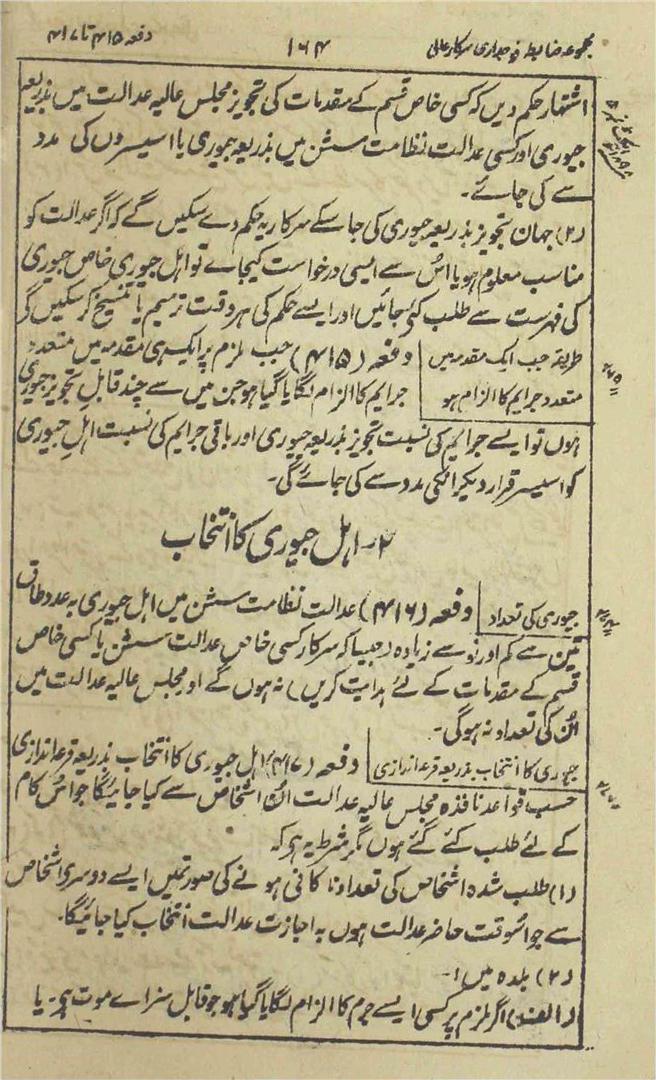 مجموعہ ضابطہ فوجداری سرکار عالی
۱۶۴
دفعہ ۴۱۵ تا ۴۱۷
اشتہار حکم دیں کہ کسی خاص قسم کے مقدمات کی تجویز مجلس عالیہ عدالت میں بذریعہ
جیوری اور کسی عدالت نظامت سشن میں بذریعہ جیوری یا اسیسروں کی مدد
سے کی جائے۔
(۲) جہان تجویز بذریعہ جیوری کی جاسکے سرکار یہ حکم دے سکیں گے کہ اگر عدالت کو
مناسب معلوم ہو یا اُس سے ایسی درخواست کیجاے تو اہل جیوری خاص جیوری
کی فہرست سے طلب کئے جائیں اور ایسے حکم کی ہر وقت ترمیم یا تنسیخ کر سکیں گے
طریقہ جب ایک مقدمہ میں
متعدد جرایم کا الزام ہو
دفعہ (۴۱۵) جب ملزم پر ایک ہی مقدمہ میں متعدد
جرایم کا الزام لگایا گیا ہو جن میں سے چند قابل تجویز جیوری
ہوں تو ایسے جرایم کی نسبت تجویز بذریعہ جیوری اور باقی جرایم کی نسبت اہل جیوری
کو اسیسر قرار دیکر انکی مدد سے کی جائے گی۔
۲۔ اہل جیوری کا انتخاب
جیوری کی تعداد
دفعہ (۴۱۶) عدالت نظامت سشن میں اہل جیوری بہ عدد طاق
تین سے کم اور نو سے زیادہ (جیسا کہ سرکار کسی خاص عدالت سشن یا کسی خاص
قسم کے مقدمات کے لئے ہدایت کریں) نہ ہوں گے او مجلس عالیہ عدالت میں
اُن کی تعداد نہ ہوگی۔
جیوری کا انتخاب بذریعہ قرعہ اندازی
دفعہ (۴۱۷) اہل جیوری کا انتخاب بذریعہ قرعہ اندازی
حسب قواعد نافذہ مجلس عالیہ عدالت اُن اشخاص سے کیا جائیگا جو اس کام
کے لئے طلب کئے گئے ہوں مگر شرط یہ ہے کہ
(۱) طلب شدہ اشخاص کی تعداد نا کافی ہونے کی صورتمیں ایسے دوسری اشخاص
سے جو اسوقت حاضر عدالت ہوں بہ اجازت عدالت انتخاب کیا جائیگا۔
(۲) بلدہ میں ا۔
(الف) اگر ملزم پر کسی ایسے جرم کا الزام لگایا گیا ہو جو قابل سزاے موت ہے۔ یا